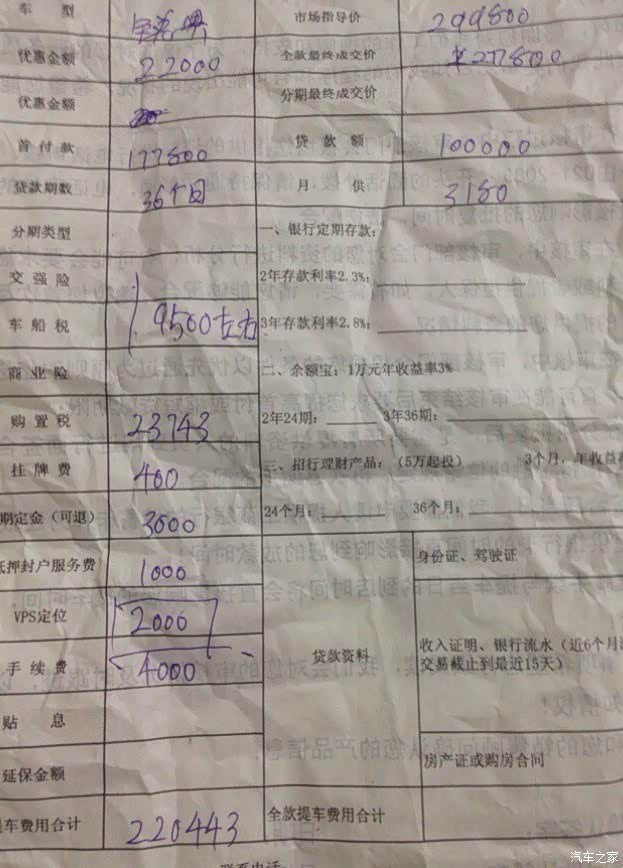 车 型 市场指导价 299800
优惠金额 22000 全款最终成交价 ¥277800
优惠金额 分期最终成交价
首付款 177800 贷款额 100000
贷款期数 36个月 月供 3180
分期类型 一、银行定期存款:
交强险 2年存款利率2.3%:
车船税 9500左右 3年存款利率2.8%:
商业险 二、余额宝: 1万元年收益率3%
购置税 23743 2年24期: 3年36期:
挂牌费 400 三、招行理财产品: (5万起投) 3个月, 年收益
期定金(可退) 3000 24个月: 36个月:
抵押封户服务费 1000 身份证、驾驶证
VPS定位 2000
手续费 4000 贷款资料 收入证明、银行流水(近6个月流
交易截止到最近15天)
贴息
延保金额 房产证或购房合同
提车费用合计 220443 全款提车费用合计
联系电话
汽车之家